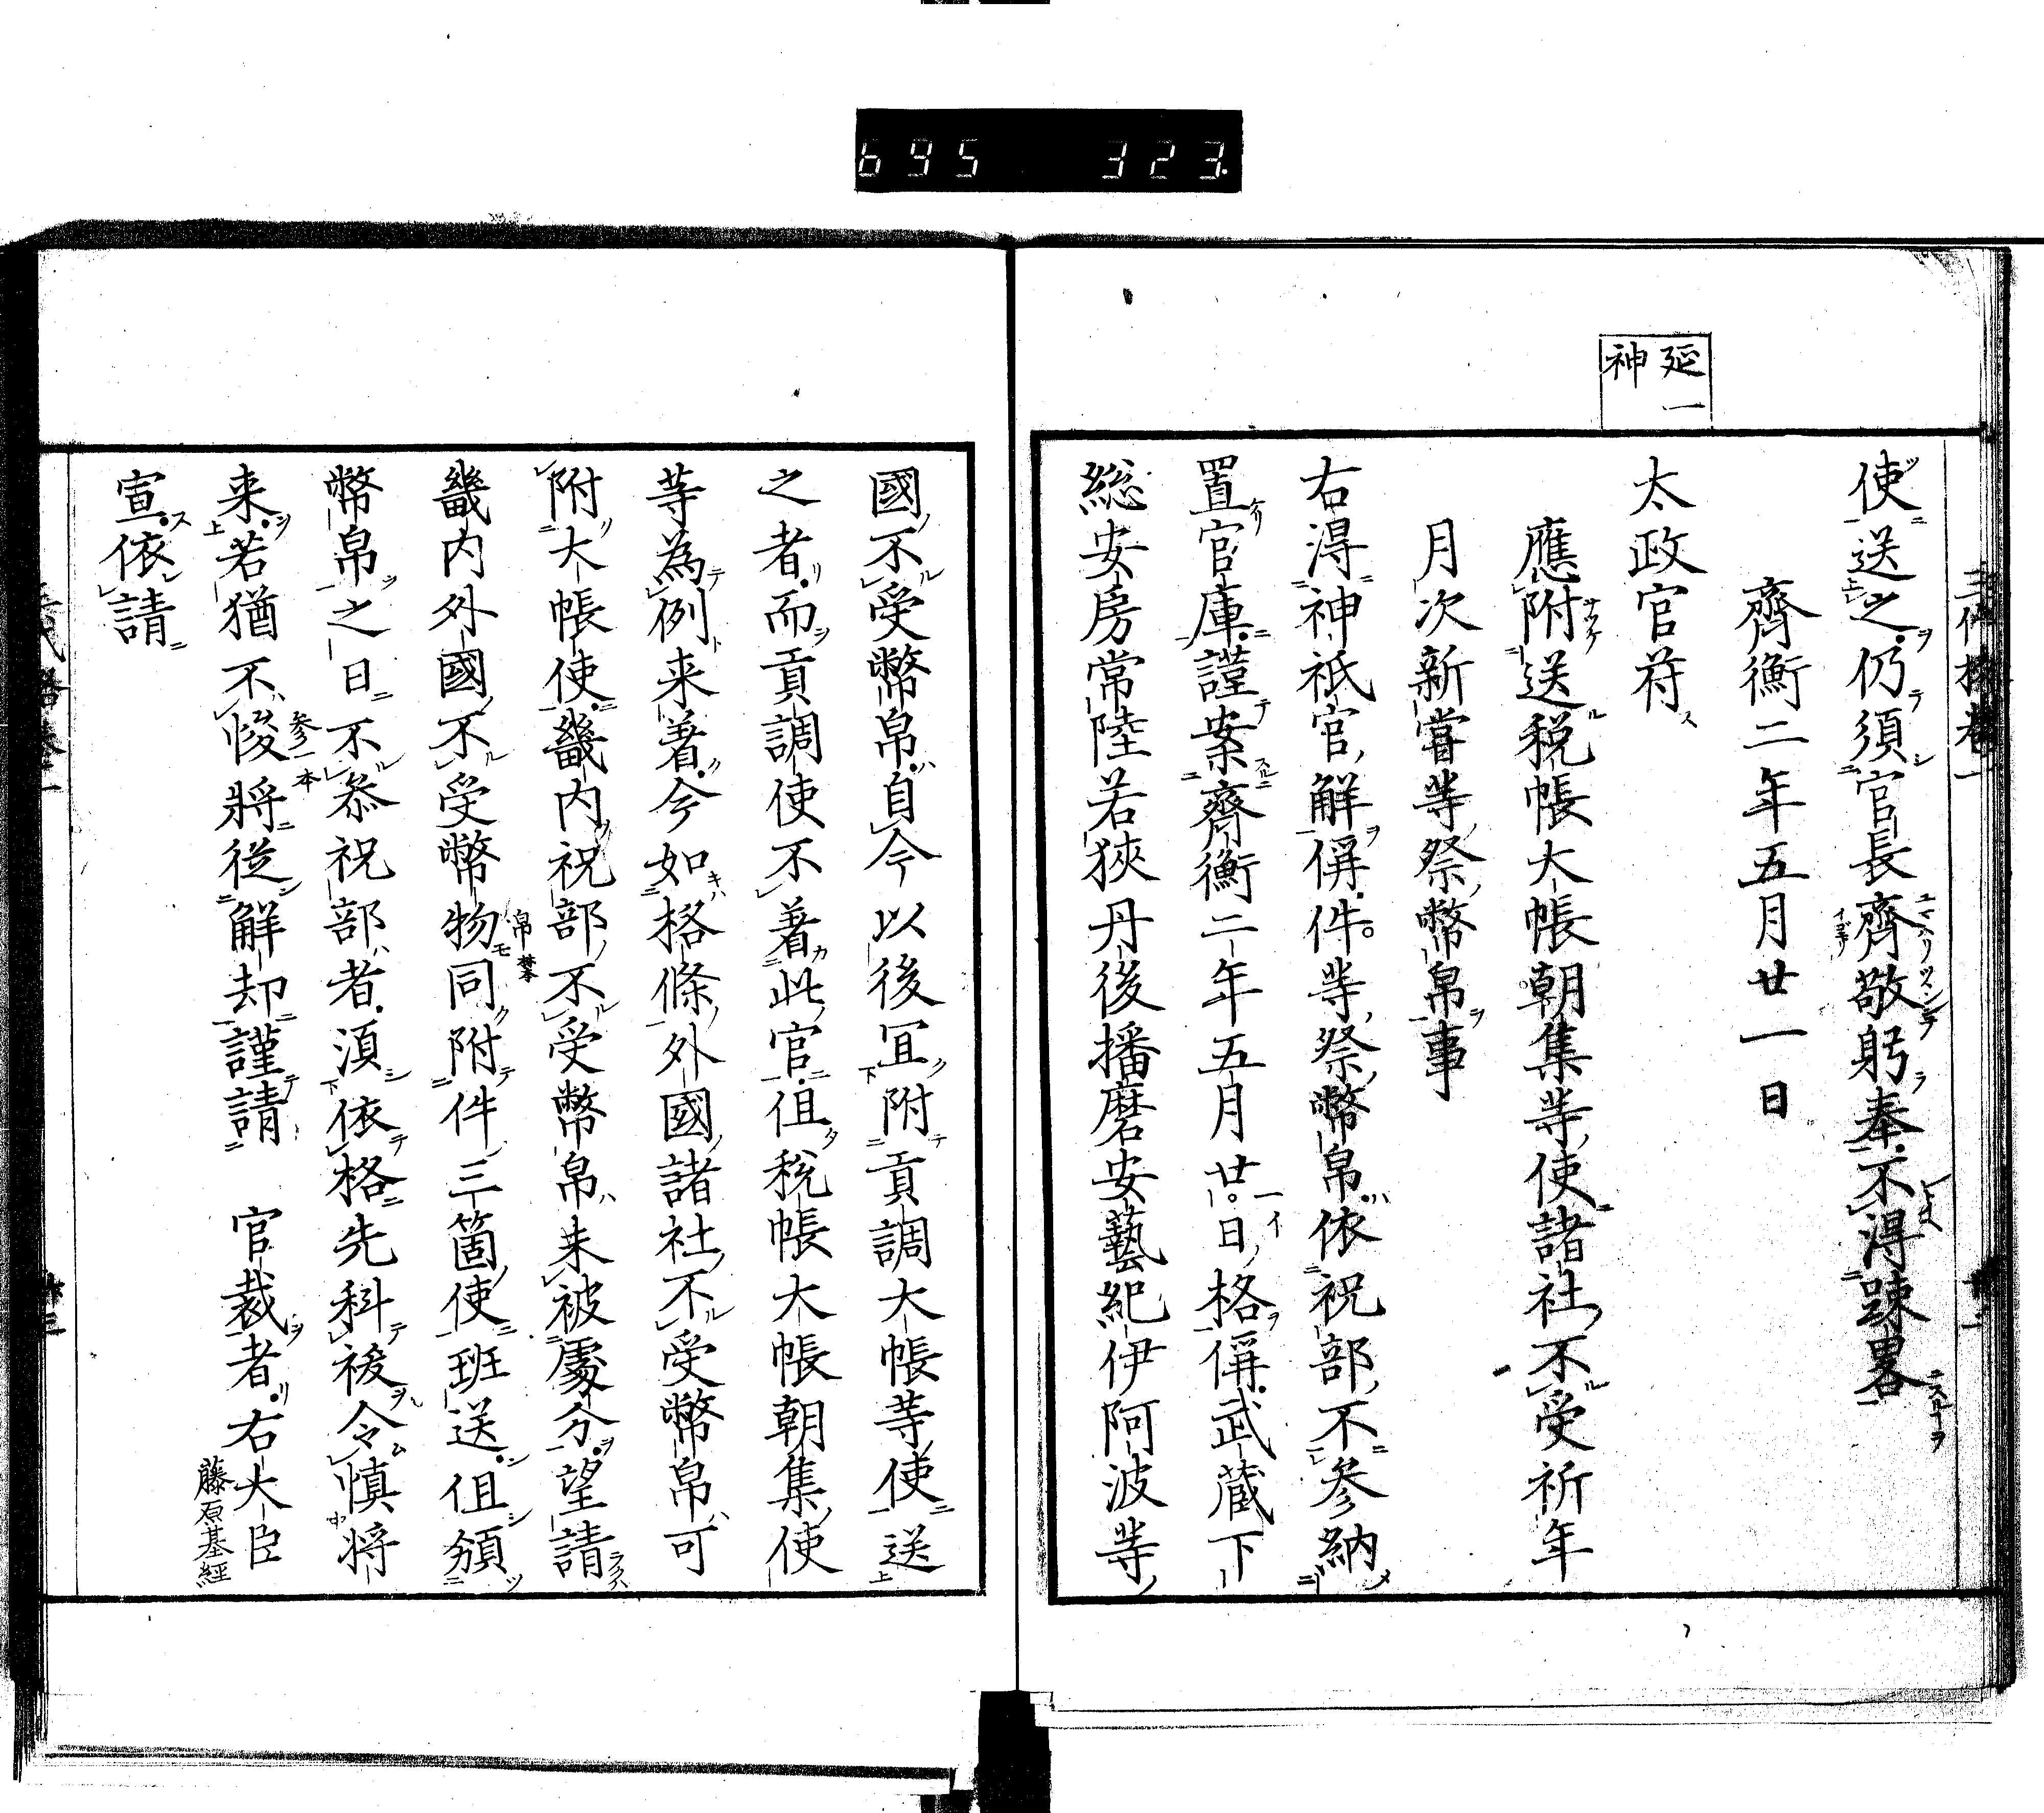 695 323
延一
神
使送之仍須官長齊敬躬奉不得踈畧
齊衡二年五月廿一日
太政官符
應附送税帳大帳朝集等使諸社不受祈年
月次新嘗等祭幣帛事
右得神祇官解偁件等祭幣帛依祝部不參納
置官庫謹案齊衡二年五月廿日格偁武蔵下
総安房常陸若狹丹後播磨安藝紀伊阿波等
國不受幣帛自今以後冝附貢調大帳等使送
之者而貢調使不著此官但税帳大帳朝集使
等為例来著今如格條外國諸社不受幣帛可
附大帳使畿内祝部不受幣帛未被處分望請
畿内外國不受幣物同附件三箇使班送但頒
幣帛之日不叅祝部者湏依格先科祓令慎将
来若猶不悛將從解却謹請 官裁者右大臣
藤原基經
宣依請